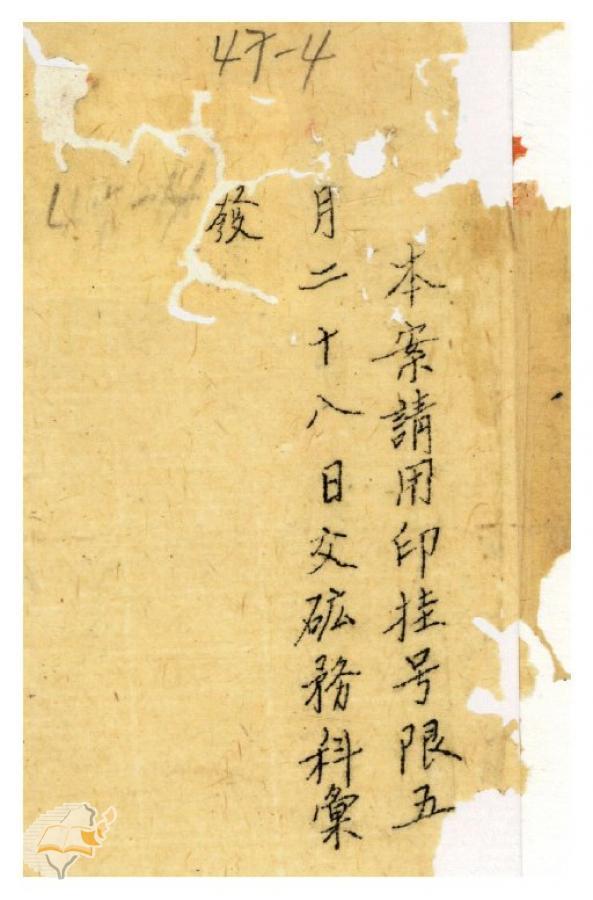 47-4
47-4
本案請用印挂号限五
月二十八日交砿務科彙
發